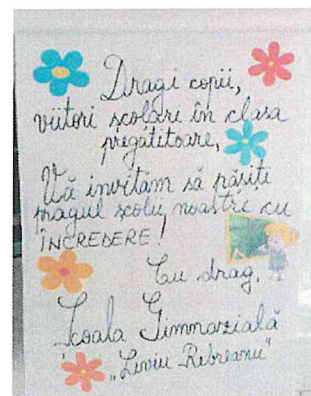 Dragi copii,
viitori școlari în clasa
pregătitoare,
Vă invităm să pășiți
pragul școlii noastre cu
ÎNCREDERE!
Cu drag,
Școala Gimnazială
„Liviu Rebreanu"